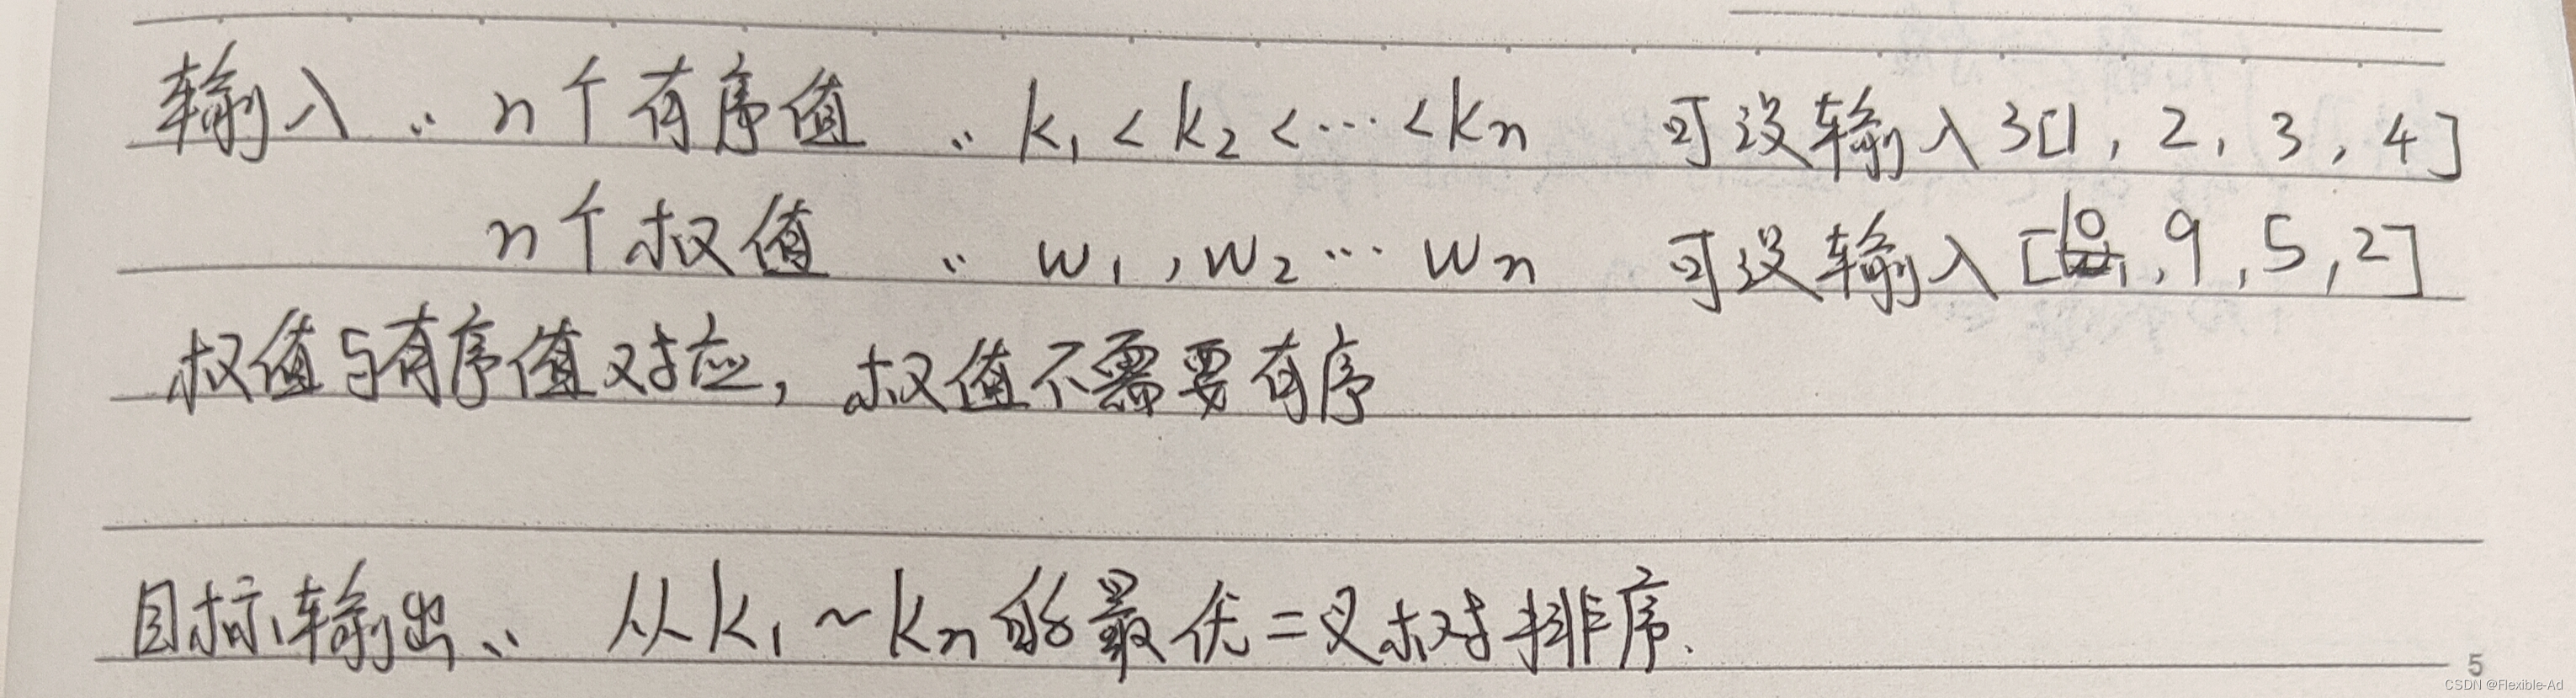 输入: n个有序值: k₁<k₂<⋯<kn 可设输入3[1, 2, 3, 4]
n个权值: w₁, w₂⋯wn 可设输入[10, 9, 5, 2]
权值与有序值对应, 权值不需要有序
目标输出: 从k₁~kn的最优二叉树排序.
5
CSDN @Flexible-Ad